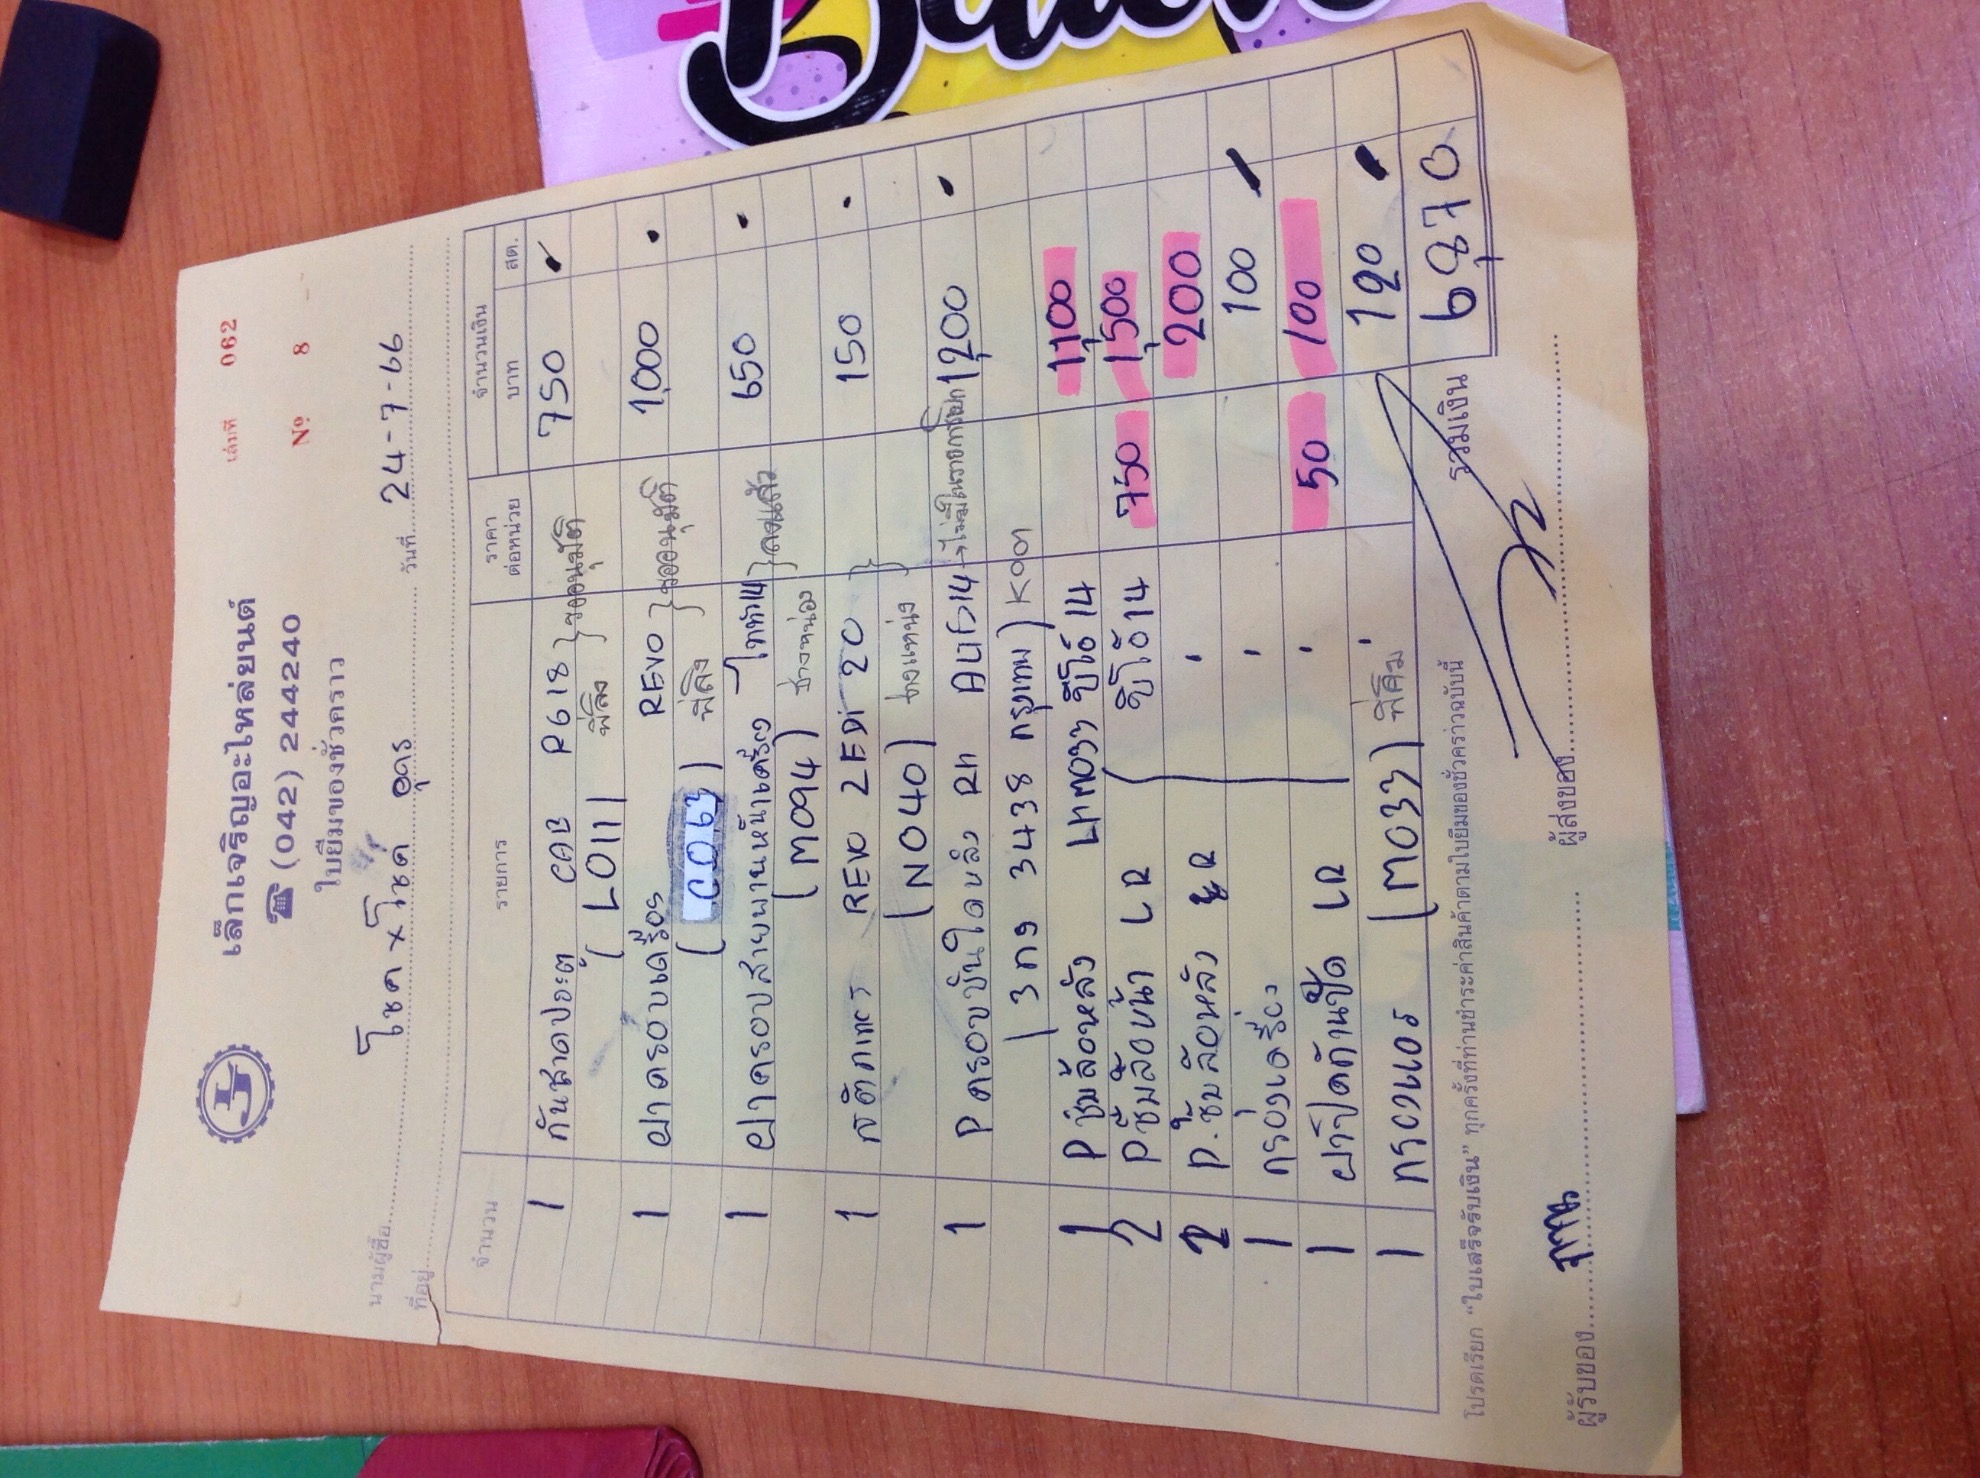 เล็กเจริญอะไหล่ยนต์
เล่มที่ 062
☎ (042) 244240
ใบยืมของชั่วคราว
Nº 8
นามผู้ซื้อ โชค x โชค อุดร วันที่ 24-7-66
ที่อยู่
จำนวน รายการ ราคาต่อหน่วย จำนวนเงิน บาท สต.
1 กันชาดประตู CAB R618 } ขออนุมัติ 750
( L011 ) พี่ลิง
1 ฝาครอบเครื่อง REVO } ขออนุมัติ 1,000
( C063 ) พี่ลิง
1 ฝาครอบสายพานหน้าเครื่อง ไททัา14 } ลงแล้ว 650
( M094 ) ช่างหน่อง
1 สติกเกอร์ REVO ZEDi 20 } 150
( N040 )
1 P ครอบบันไดหลัง RH 14 → ไม่มีในรายการซ่อม 1,200
( 3กง 3438 กรุงเทพ )
1 P ซุ้มล้อหลัง 14 1,100
2 P ซุ้มล้อหน้า LR 14 750 1,500
2 P. ซุ้มล้อหลัง R 200
1 กรองเครื่อง 100
1 ฝาปิดกันปัด LR 50 100
1 กรองแอร์ ( M033 ) 120
รวมเงิน 6,870
โปรดเรียก "ใบเสร็จรับเงิน" ทุกครั้งที่ท่านชำระค่าสินค้าตามใบยืมของชั่วคราวฉบับนี้
ผู้รับของ ผู้ส่งของ